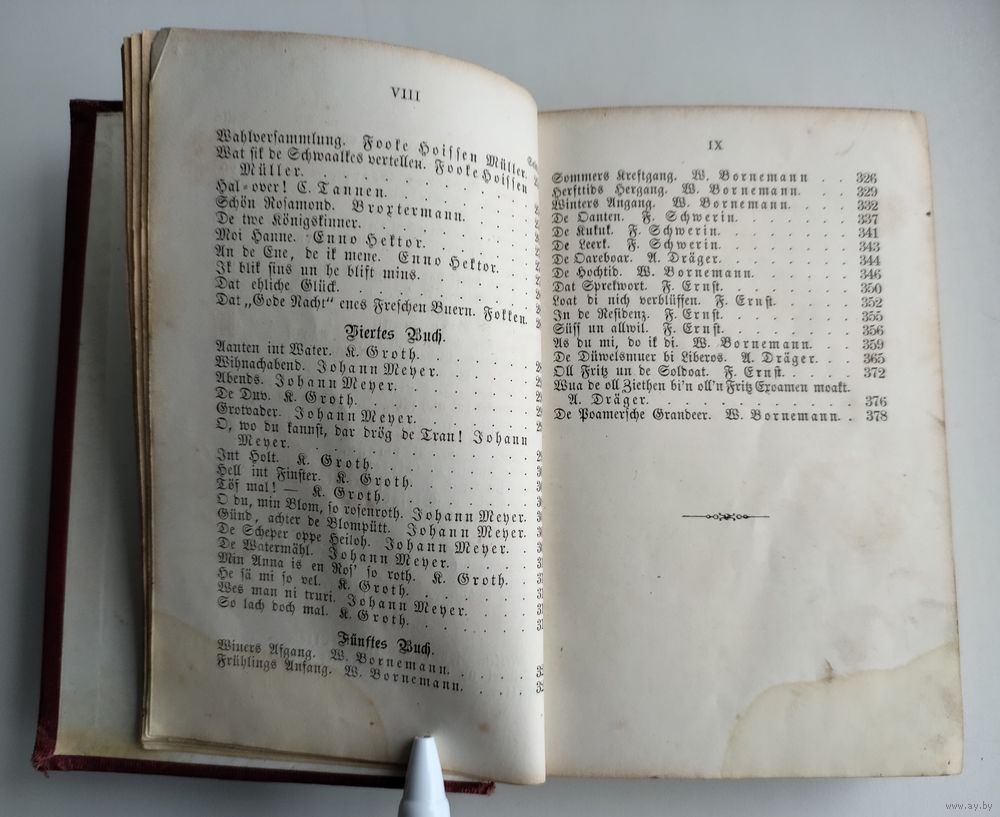 VIII
Wahlversammlung. Fooke Hoissen Müller.
Wat sik de Schwaalkes vertellen. Fooke Hoissen
Müller. . . . . . . . . .
Hal-over! C. Tannen. . . . . . .
Schön Rosamond. Broxtermann. . . . .
De twe Königskinner. . . . . . . .
Moi Hanne. Enno Hektor. . . . . .
An de Ene, de ik mene. Enno Hektor. . .
Ik blik sins un he blift mins. . . . . .
Dat ehliche Glück. . . . . . . . .
Dat „Gode Nacht" enes Freschen Buern. Fokken.
Viertes Buch.
Aanten int Water. K. Groth. . . . . .
Wihnachabend. Johann Meyer. . . . .
Abends. Johann Meyer. . . . . . .
De Duv. K. Groth. . . . . . . .
Grotvader. Johann Meyer. . . . . .
O, wo du kannst, dar drög de Tran! Johann
Meyer. . . . . . . . . .
Int Holt. K. Groth. . . . . . . .
Hell int Finster. K. Groth. . . . . .
Töf mal! — K. Groth. . . . . . .
O du, min Blom, so rosenroth. Johann Meyer.
Günd, achter de Blompütt. Johann Meyer.
De Scheper oppe Heiloh. Johann Meyer. .
De Watermähl. Johann Meyer. . . . .
Min Anna is en Ros' so roth. K. Groth. .
He sä mi so vel. K. Groth. . . . . .
Wes man ni truri. Johann Meyer. . . .
So lach doch mal. K. Groth. . . . . .
Fünftes Buch.
Winters Afgang. W. Bornemann. . . .
Frühlings Anfang. W. Bornemann. . . .
IX
Sommers Kreftgang. W. Bornemann . . 326
Herfttids Hergang. W. Bornemann. . . 329
Winters Angang. W. Bornemann. . . . 332
De Oanten. F. Schwerin. . . . . . 337
De Kukuk. F. Schwerin. . . . . . 341
De Leerk. F. Schwerin. . . . . . 343
De Oareboar. A. Dräger. . . . . . 344
De Hochtid. W. Bornemann. . . . . 346
Dat Sprekwort. F. Ernst. . . . . . 350
Loat di nich verblüffen. F. Ernst. . . . 352
In de Residenz. F. Ernst. . . . . . 355
Süss un allwil. F. Ernst. . . . . . 356
As du mi, do ik di. W. Bornemann. . . 359
De Düwelsmuer bi Liberos. A. Dräger. . . 365
Oll Fritz un de Soldoat. F. Ernst. . . . 372
Wua de oll Ziethen bi'n oll'n Fritz Exoamen moakt.
A. Dräger. . . . . . . . . 376
De Poamersche Grandeer. W. Bornemann. . 378
www.ay.by